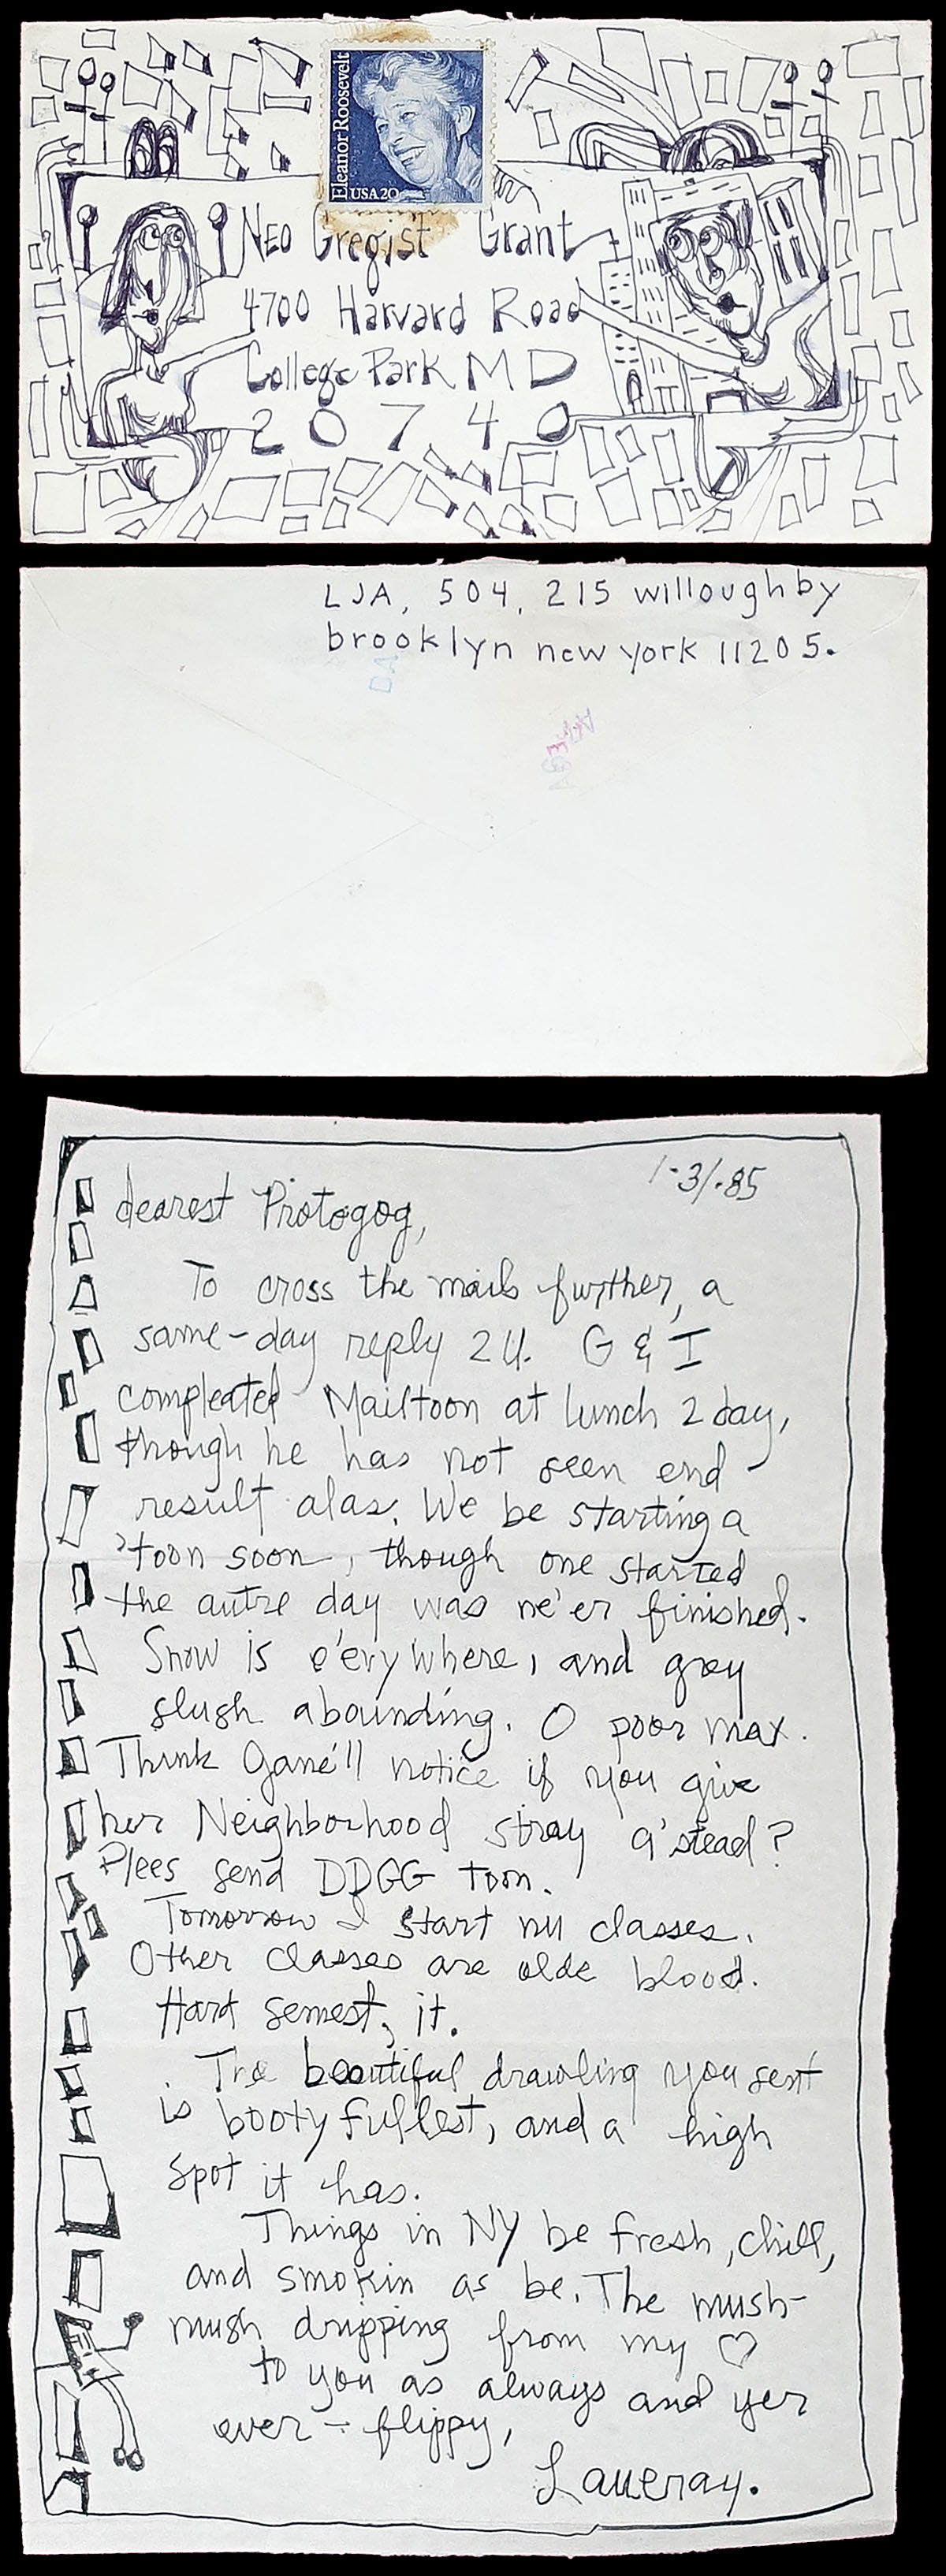 Eleanor Roosevelt
USA 20
Neo Gregist Grant
4700 Harvard Road
College Park MD
20740
LJA, 504, 215 willoughby
brooklyn new york 11205.
1-31-85
dearest Protogog,
To cross the mails further, a
same-day reply 2 U. G & I
compleated Mailtoon at lunch 2day,
though he has not seen end
result alas. We be starting a
'toon soon, though one started
the autre day was ne'er finished.
Snow is e'erywhere, and grey
slush abounding. O poor max.
Think Gane'll notice if you give
her Neighborhood stray a'stead?
Plees send DDGG toon.
Tomorrow I start nu classes.
Other classes are olde blood.
Hard semest, it.
The beautiful drawling you sent
is booty fullest, and a high
spot it has.
Things in NY be fresh, chill,
and smokin as be. The mush-
mush dripping from my ♡
to you as always and yer
ever-flippy,
Laueray.